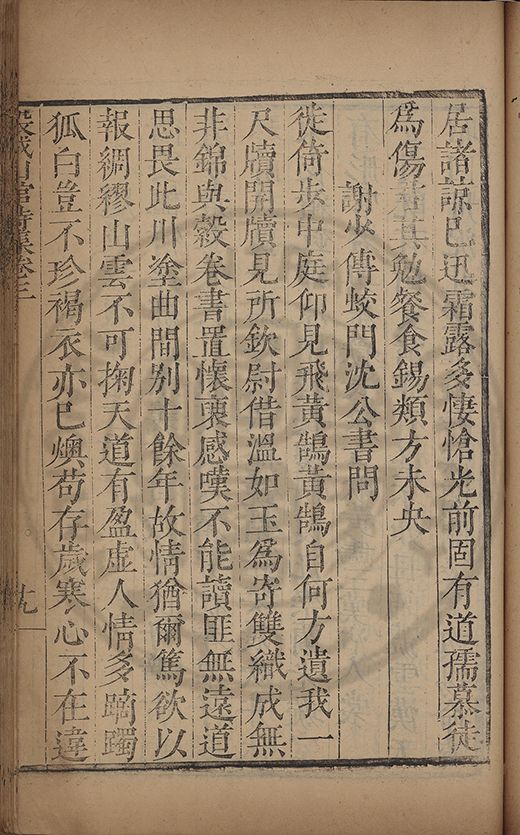 居諸諒已迅霜露多悽愴光前固有道孺慕徒
爲傷 其勉餐食錫類方未央
謝少傅蛟門沈公書問
徙倚步中庭仰見飛黃鵠黃鵠自何方遺我一
尺牘開牘見所欽尉借溫如玉爲寄雙織成無
非錦與縠卷書置懷褏感嘆不能讀匪無遠道
思畏此川塗曲間别十餘年故情猶爾篤欲以
報綢繆山雲不可掬天道有盈虛人情多蹢躅
狐白豈不珍褐衣亦已燠苟存歲寒心不在違
集卷三
十九